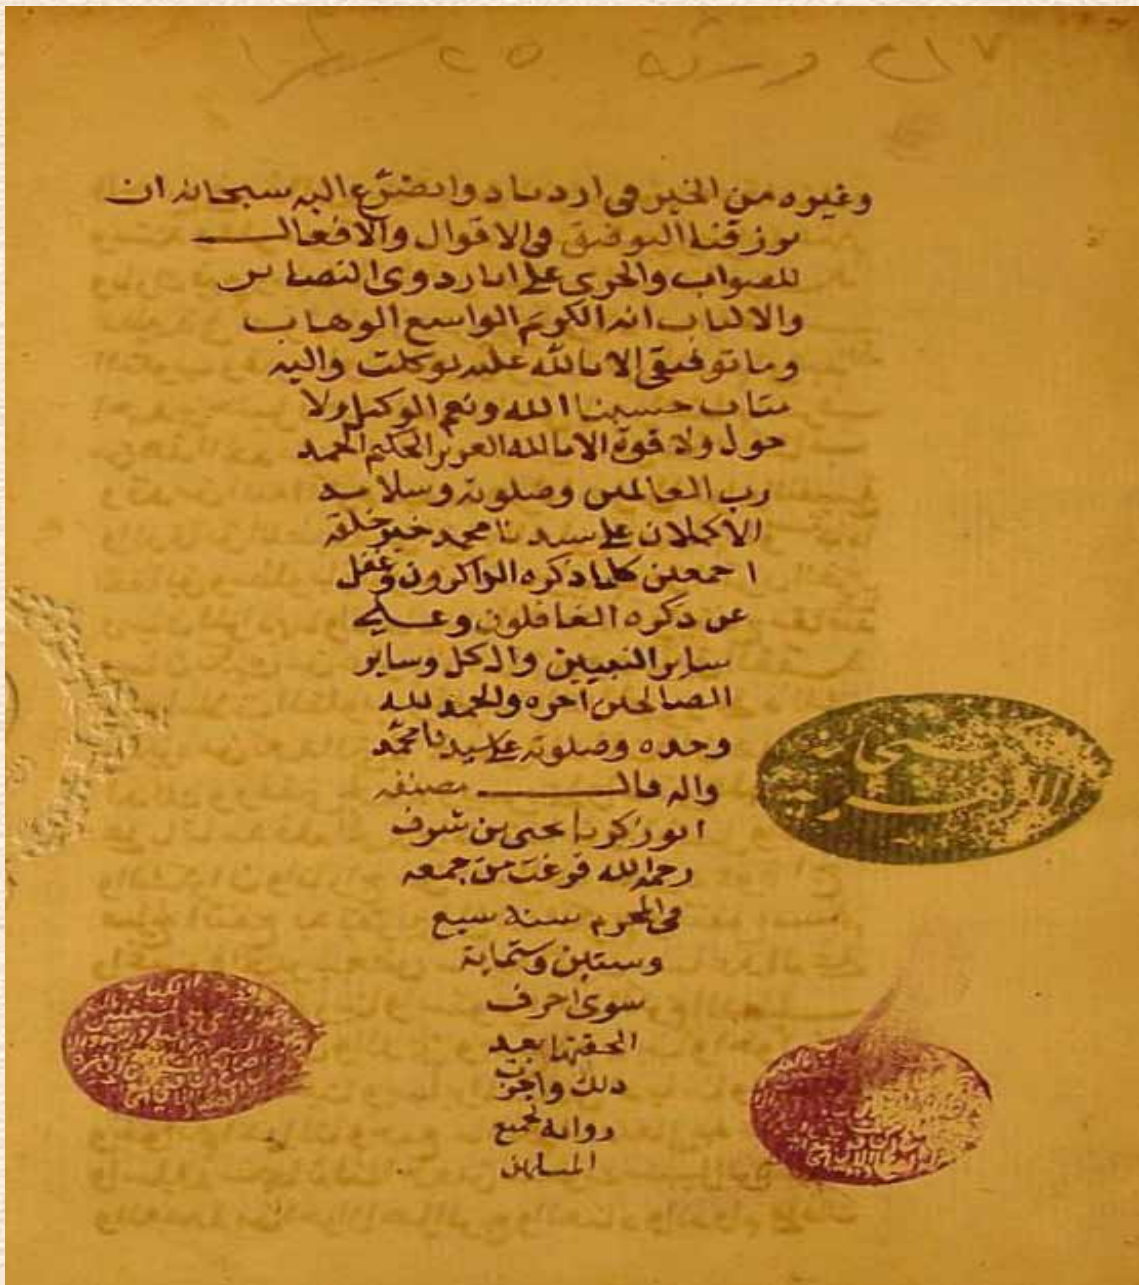 ٢١٧ ورقة ٢٥ سطرا
وغيره من الخير في ازدياد واتضرع اليه سبحانه ان
يرزقنا التوفيق في الاقوال والافعال
للصواب والجري على اثار ذوي البصاير
والالباب انه الكريم الواسع الوهاب
وما توفيقي الا بالله عليه توكلت واليه
متاب حسبنا الله ونعم الوكيل ولا
حول ولا قوة الا بالله العزيز الحكيم الحمد
رب العالمين وصلوته وسلامه
الاكملان على سيدنا محمد خير خلقه
اجمعين كلما ذكره الذاكرون وغفل
عن ذكره الغافلون وعلى
ساير النبيين وال كل وساير
الصالحين اخره والحمد لله
وحده وصلوته على سيدنا محمد
واله قال مصنفه
ابو زكريا يحيى بن شرف
رحمه الله فرغت من جمعه
في المحرم سنة سبع
وستين وستماية
سوى احرف
الحقتها بعيد
ذلك واجزت
روايته لجميع
المسلمين